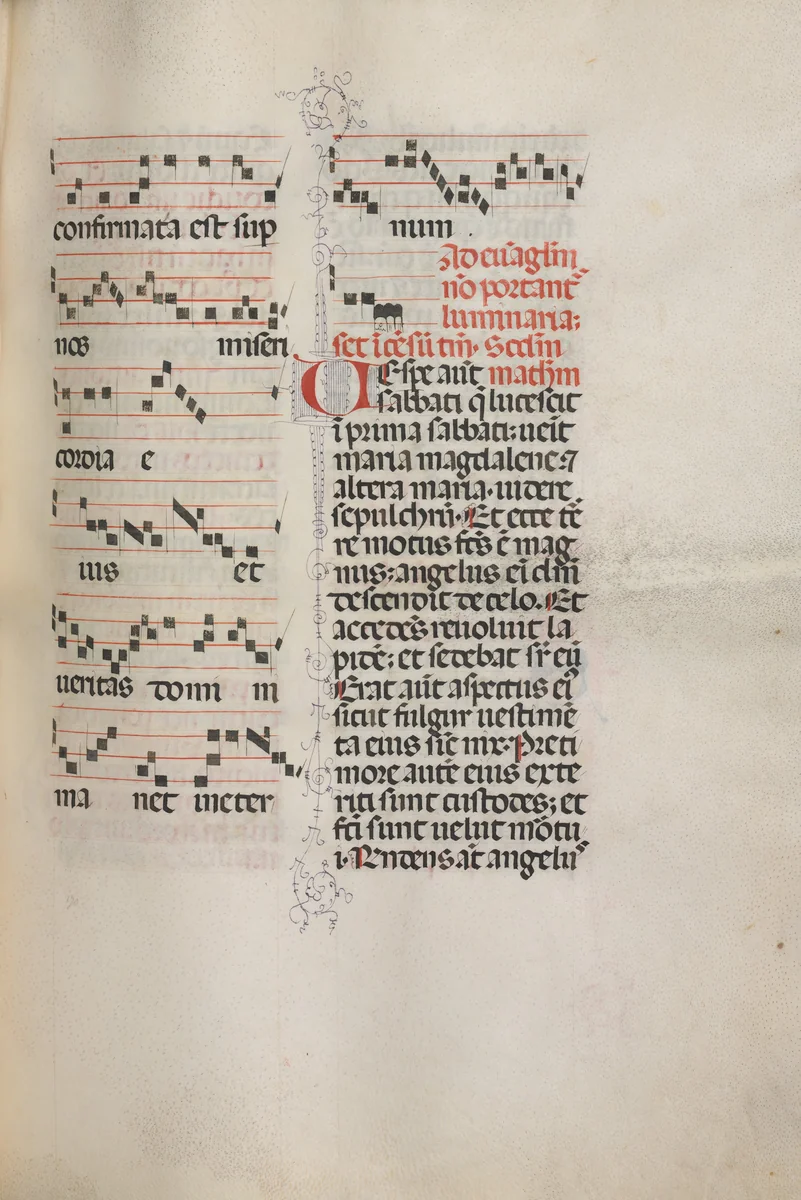 confirmata est sup
nos miseri
cordia e
ius et
ueritas domi ni
ma net ineter
num .
Ad eua̅gliu̅
no̅ portant̅
luminaria;
set i̅ce̅su̅ tm̅. Scd̅m
Uespe aut̅ math̅m
sabbati q̅ lucescit
i̅ prima sabbati; uenit
maria magdalene ⁊
altera maria. uidere
sepulchru̅. Et ecce te̅
re motus fc̅s e̅ mag
nus; angelus ei̅ dn̅i
descendit de celo. Et
accede̅s reuoluit la
pide̅; et sedebat sr̅ eu̅
Erat aut̅ aspectus ei᾽
sicut fulgur uestime̅
ta eius sic̅ nix. Preti
more aute̅ eius exte
riti sunt custodes; et
fc̅i sunt uelut mo̅tu
i. Rn̅dens at̅ angelu᾽